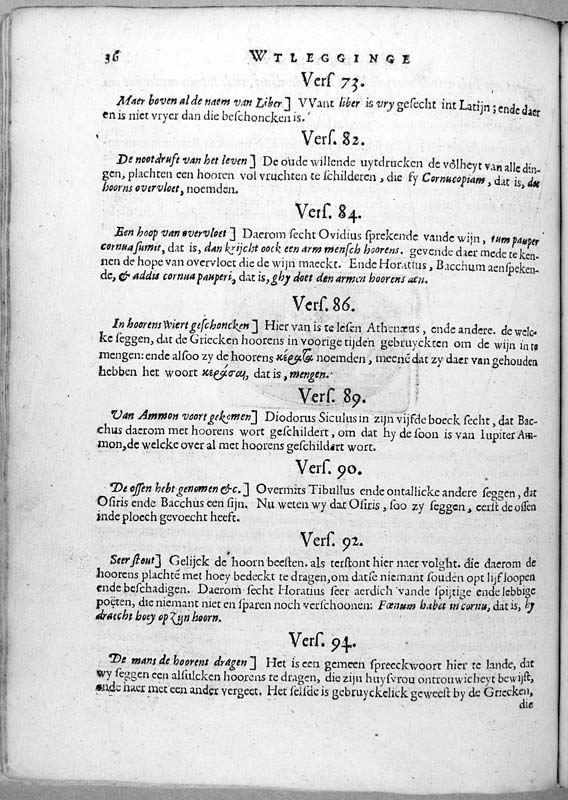 36 WTLEGGINGE
Vers 73.
Maer boven al de naem van Liber] VVant liber is vry gesecht int Latijn; ende daer
en is niet vryer dan die beschoncken is.
Vers. 82.
De nootdruft van het leven] De oude willende uytdrucken de volheyt van alle din-
gen, plachten een hooren vol vruchten te schilderen, die sy Cornucopiam, dat is, des
hoorns overvloet, noemden.
Vers. 84.
Een hoop van overvloet] Daerom secht Ovidius sprekende vande wijn, tum pauper
cornua sumit, dat is, dan krijcht oock een arm mensch hoorens. gevende daer mede te ken-
nen de hope van overvloet die de wijn maeckt. Ende Horatius, Bacchum aenspeken-
de, & addis cornua pauperi, dat is, ghy doet den armen hoorens aen.
Vers. 86.
In hoorens wiert geschoncken] Hier van is te lesen Athenæus, ende andere. de welc-
ke seggen, dat de Griecken hoorens in voorige tijden gebruyckten om de wijn in te
mengen: ende alsoo zy de hoorens κέρατα noemden, meenē dat zy daer van gehouden
hebben het woort κεράσαι, dat is, mengen.
Vers. 89.
Van Ammon voort gekomen] Diodorus Siculus in zijn vijfde boeck secht, dat Bac-
chus daerom met hoorens wort geschildert, om dat hy de soon is van Iupiter Am-
mon, de welcke over al met hoorens geschildert wort.
Vers. 90.
De ossen hebt genomen &c.] Overmits Tibullus ende ontallicke andere seggen, dat
Osiris ende Bacchus een sijn. Nu weten wy dat Osiris, soo zy seggen, eerst de ossen
inde ploech gevoecht heeft.
Vers. 92.
Seer stout] Gelijck de hoorn beesten. als terstont hier naer volght. die daerom de
hoorens plachtē met hoey bedeckt te dragen, om datse niemant souden opt lijf loopen
ende beschadigen. Daerom secht Horatius seer aerdich vande spijtige ende lebbige
poëten, die niemant niet en sparen noch verschoonen: Fœnum habet in cornu, dat is, hy
draecht hoey op zijn hoorn.
Vers. 94.
De mans de hoorens dragen] Het is een gemeen spreeckwoort hier te lande, dat
wy seggen een alsulcken hoorens te dragen, die zijn huysvrou ontrouwicheyt bewijst,
ende haer met een ander vergeet. Het selfde is gebruyckelick geweest by de Griecken,
die